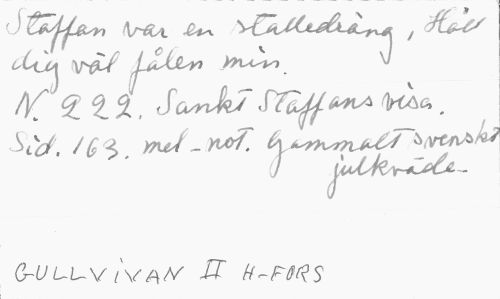 Staffan var en stalledräng, Håll
dig väl fålen min.
N. 222. Sankt Staffans visa.
Sid. 163. mel-not. Gammalt svenskt
julkväde-
GULLVIVAN II H-FORS